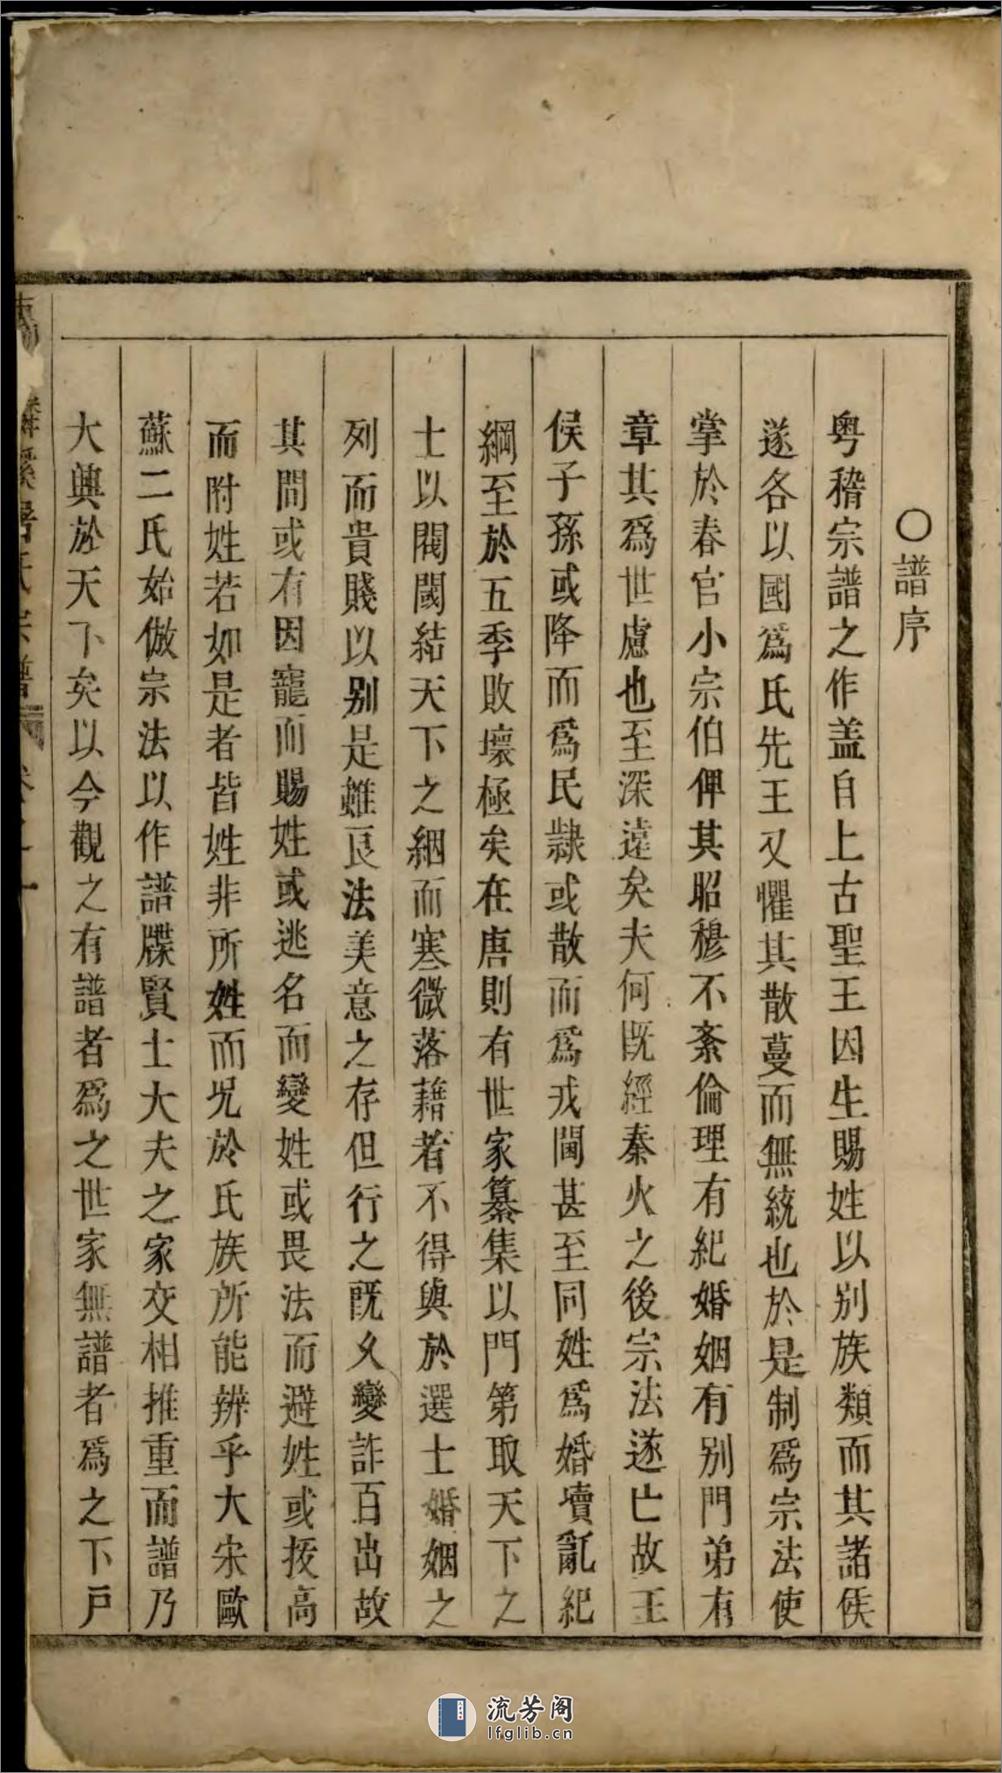 〇譜序
粤稽宗譜之作盖自上古聖王因生賜姓以别族類而其諸侯
遂各以國爲氏先王又懼其散蔓而無統也於是制爲宗法使
掌於春官小宗伯俾其昭穆不紊倫理有紀婚姻有别門弟有
章其爲世慮也至深遠矣夫何既經秦火之後宗法遂亡故王
侯子孫或降而爲民隸或散而爲戎閩甚至同姓爲婚凟亂紀
綱至於五季敗壞極矣在唐則有世家纂集以門第取天下之
士以閥閱結天下之姻而寒微落藉者不得與於選士婚姻之
列而貴賤以别是雖良法美意之存但行之既久變詐百出故
其間或有因寵而賜姓或逃名而變姓或畏法而避姓或扳高
而附姓若如是者皆姓非所姓而况於氏族所能辨乎大宋歐
蘇二氏始倣宗法以作譜牒賢士大夫之家交相推重而譜乃
大興於天下矣以今觀之有譜者爲之世家無譜者爲之下戸
氏宗譜
流芳阁
lfglib.cn